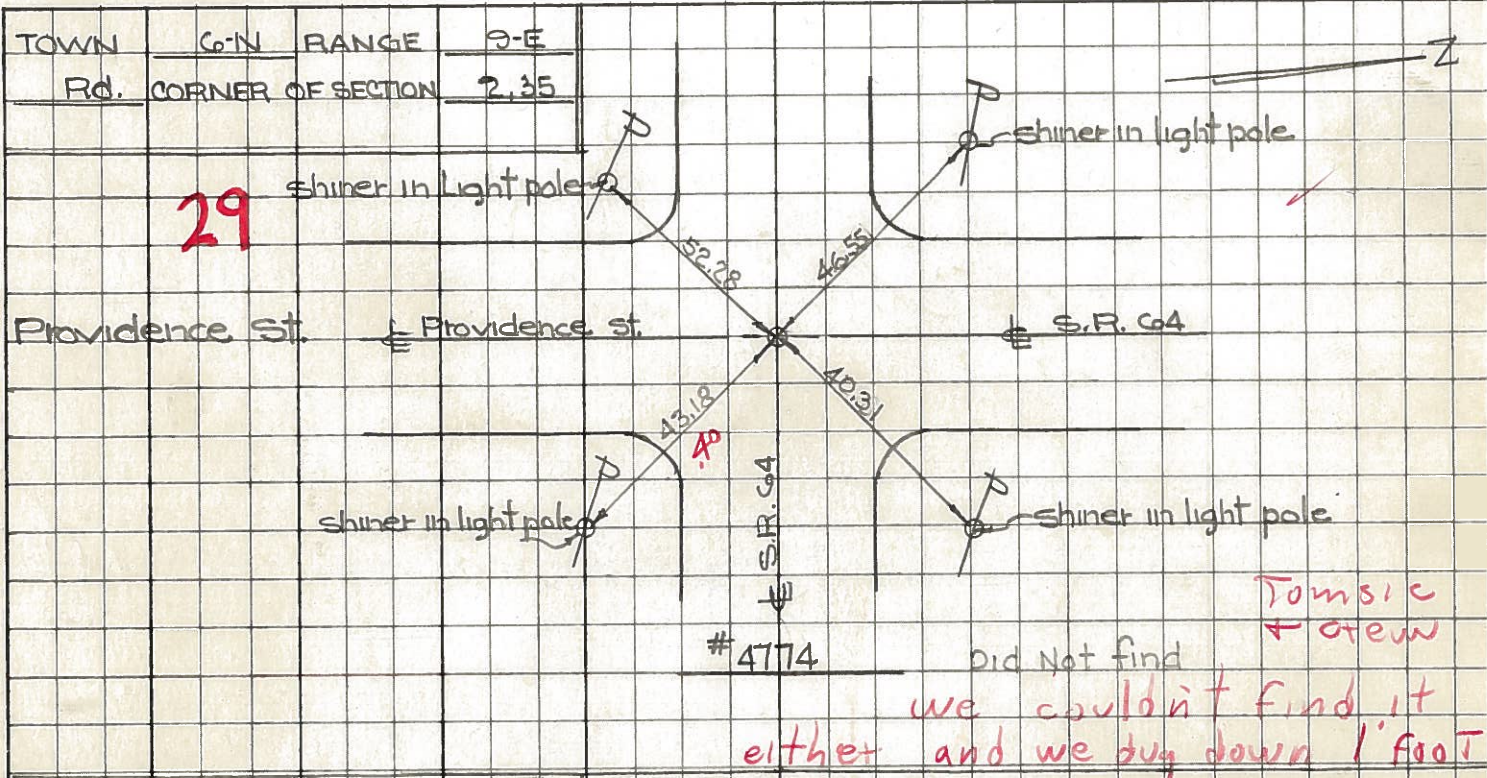 TOWN 6-N RANGE 9-E
Rd. CORNER OF SECTION 2,35
Z
shiner in light pole
shiner in Light pole
29
52.28
46.55
Providence St.
℄ Providence St.
℄ S.R. 64
43.18
.40
40.31
℄ S.R. 64
shiner in light pole
shiner in light pole
Tomsic
+ crew
#4774
Did Not find
we couldn't find it
either and we dug down 1' foot